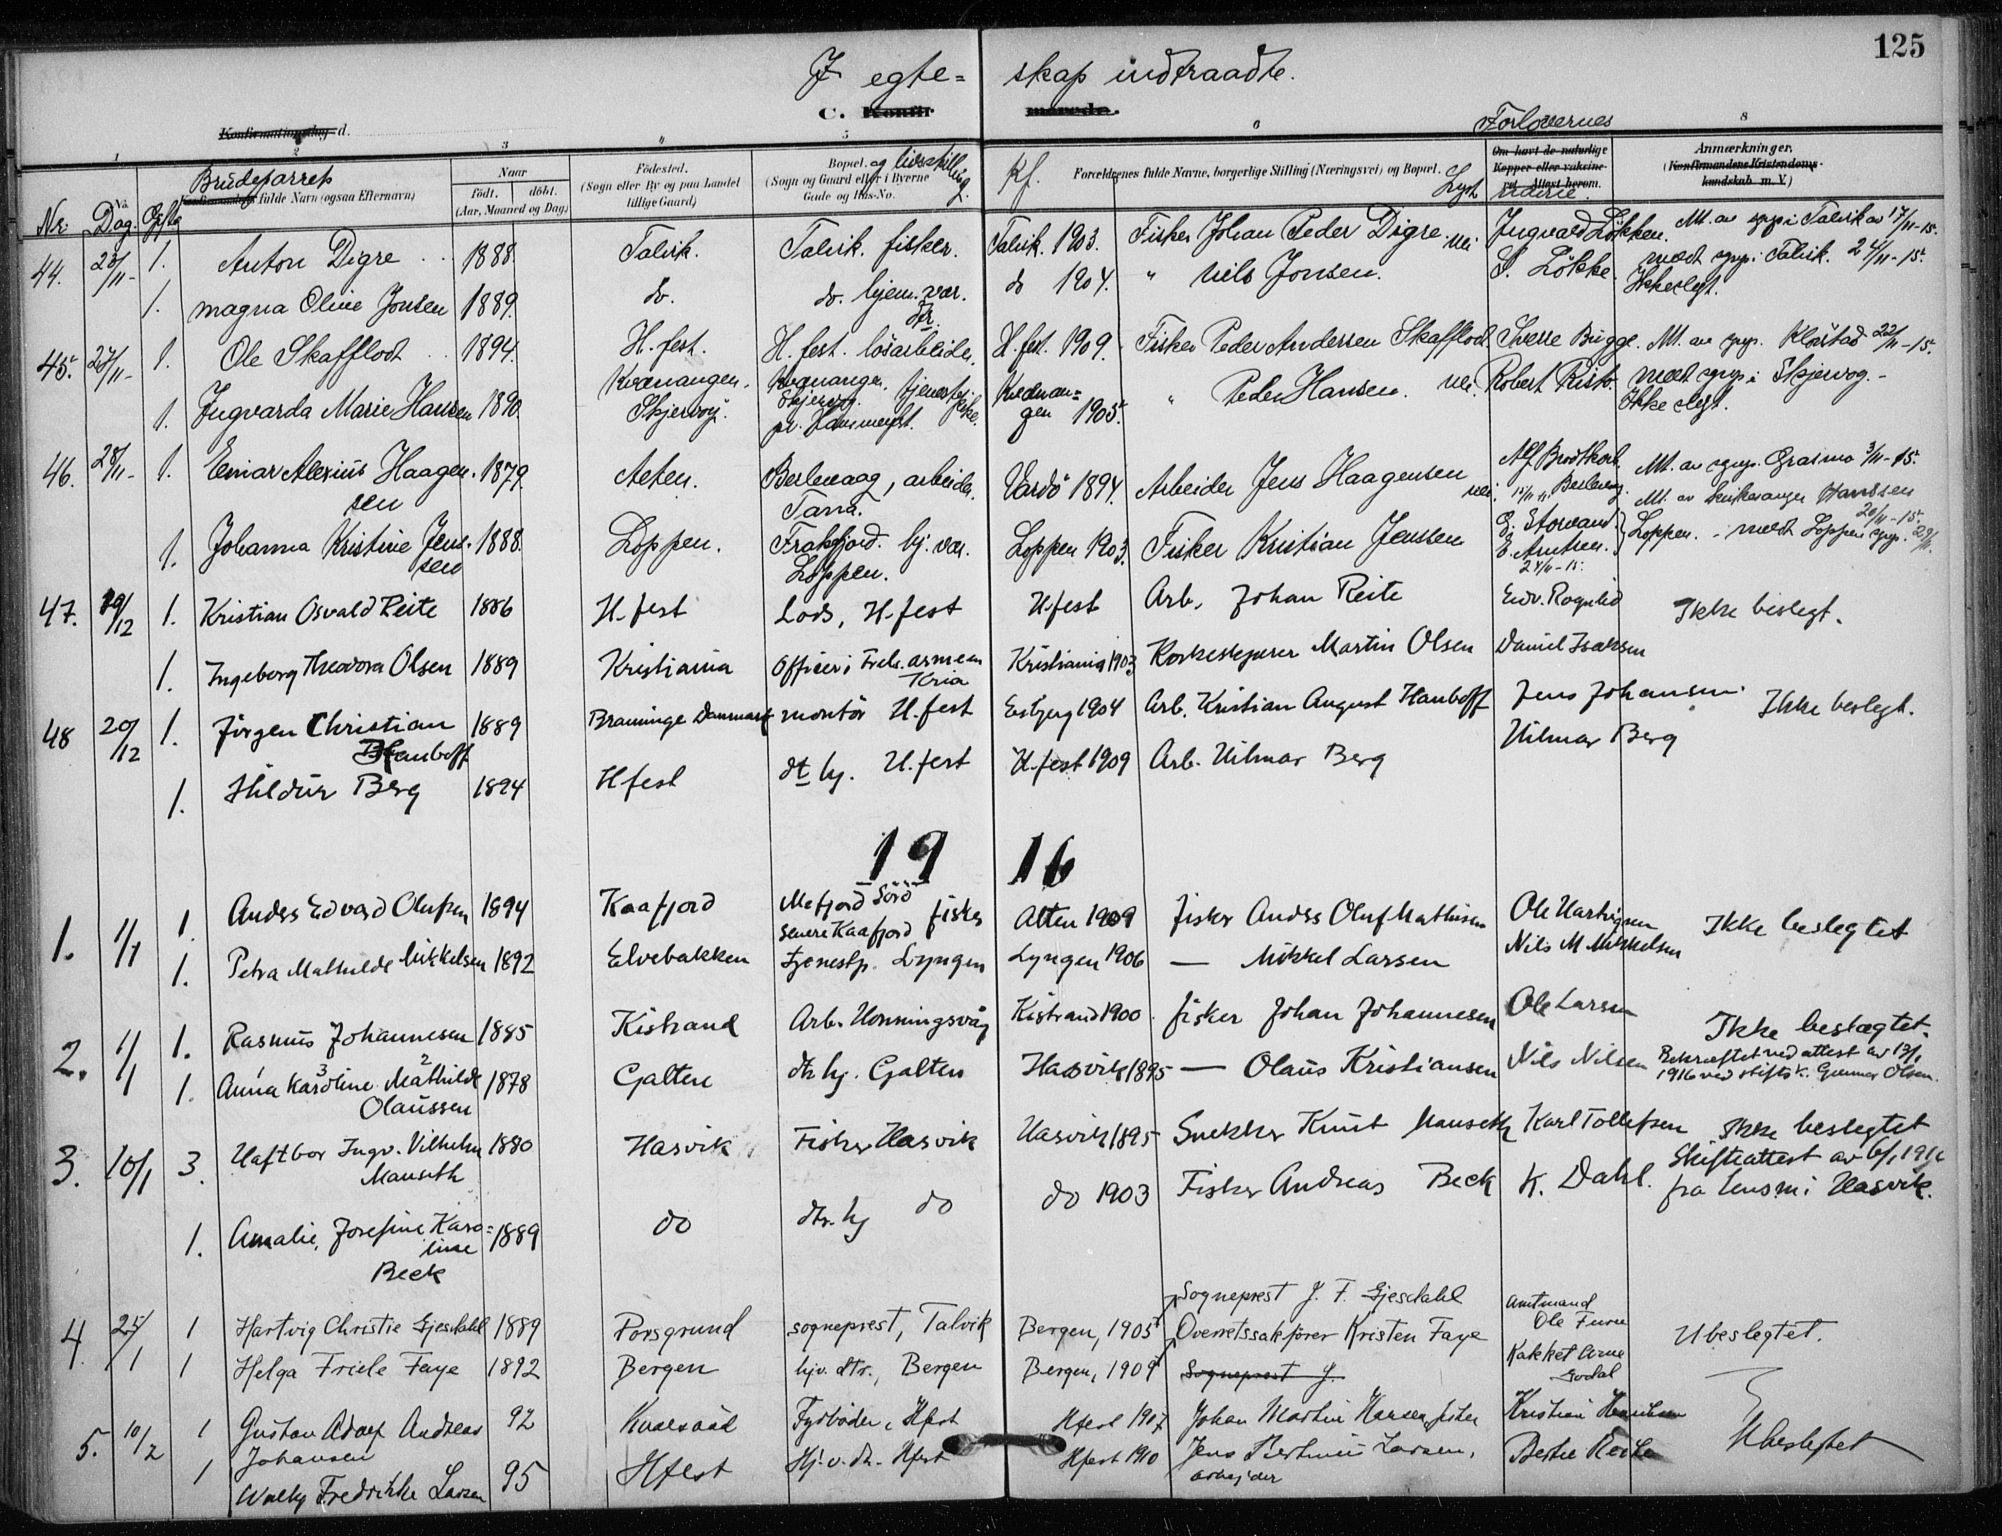 125
I egte= skap indtraadte.
C. Konfir merede.
Konfirmationsdag d.
1 2 3 4 5 6 8
Forlovernes
Brudeparrets
Konfirmandens fulde Navn (ogsaa Efternavn)
Naar
født. døbt.
(Aar, Maaned og Dag)
Fødested.
(Sogn eller By og paa Landet
tillige Gaard)
Bopæl. og livsstilling.
(Sogn og Gaard eller i Byerne
Gade og Hus-No.
Kf.
Forældrenes fulde Navne, borgerlige Stilling (Næringsvei) og Bopæl.
Om havt de naturlige
Kopper eller vaksine-
ret. Attest herom.
navne.
Anmærkninger.
(Konfirmandens Kristendoms-
kundskab m. V.)
Nr. Dag. Gifte
44. 23/11- 1. Anton Digre 1888. Talvik. Talvik. fisker. Talvik. 1903. Fisker Johan Peder Digre. nei Ingvard Løkken. Mt. av sgnp i Talvik av 17/11-15.
1. Magna Oline Jonsen 1889. do. do. hjem. vær. do 1904. " Nils Jonsen. S. Løkke. mældt sgnp. i Talvik. 24/11-15.
Ikke slegt.
45. 27/11- 1. Ole Skafflodt 1894. H. fest. H. fest. løsarbeider. H. fest. 1909. Fisker Peder Andersen Skafflodt Sverre Brügge. Mt. av sgnp. Klørstad 22/11-15.
1. Ingvarda Marie Hansen 1890. Kvænangen. Skjervøy. Kvænangen. Skjervøy. tjenestepike. pr. Hammerfest. Kvænan=gen 1905. " Peder Hansen. nei. Robert Risto. mældt sgnp i Skjervøy.-
Ikke slegt.
46. 28/11- 1. Einar Alexius Haagensen 1879. Alten. Berlevaag, arbeider. Tana. Vardø 1894. Arbeider Jens Haagensen nei. Alf Brodtkorb. Berlevåg. Mt. av sgnp. Grasmo 3/11-15.
1. Johanna Kristine Jensen 1888. Loppen. Frakfjord. hj. vær. Loppen. Loppen 1903. Fisker Kristian Jenssen E. Storvand. E. Arntsen. 24/11-15. Mt. av kirkesanger Hanssen Loppen. 20/11-15. - mældt Loppen sgnp. 29/11.
47. 19/12 1. Kristian Osvald Reite 1886 H. fest Lods, H. fest H. fest Arb. Johan Reite Edv. Rognlid Ikke beslegt.
1. Ingeborg Theodora Olsen 1889 Kristiania Officer i Frels. armeen Kria Kristiania 1903 Korkeskjærer Martin Olsen Daniel Isaksen
48 20/12 1. Jörgen Christian Hauboff 1889 Braminge Danmark montør H. fest Esbjerg 1904 Arb. Kristian August Hauboff Jens Johansen. Ikke beslegt.
1. Hildur Berg 1894 H fest dt hj. H. fest H. fest 1909 Arb. Hilmar Berg Hilmar Berg
19 16
1. 1/1 1. Anders Edvard Olufsen 1894 Kaafjord Mefjord Sörö senere Kaafjord fisker Alten 1909 fisker Anders Oluf Mathisen Ole Hartvigsen Ikke beslegtet
1. Petra Mathilde Mikkelsen 1892 Elvebakken tjenestp. Lyngen Lyngen 1906 — Mikkel Larsen Nils M Mikkelsen
2. 1/1 1. Rasmus Johannesen 1885 Kistrand Arb. Honningsvåg Kistrand 1900. fisker Johan Johannesen Ole Larsen Ikke beslegtet.
1. Anna Karoline Mathilde Olaussen 1878 Galten dtr hj. Galten Hasvik 1895 — Olaus Kristiansen Nils Nilsen Bekræftet ved attest av 13/1
1916 ved stiftsk. Gunnar Olsen.
3. 10/1 3. Haftbor Ingv. Vilhelm Mauseth 1880 Hasvik Fisker Hasvik Hasvik 1895 Snekker Knut Mauseth Karl Tollefsen Ikke beslegtet
Skifteattest av 6/1 1916
fra lensm i Hasvik.
1. Amalie, Josefine Karo=line Beck 1889 do dtr. hj do do 1903 Fisker Andreas Beck K. Dahl.
4. 25/1 1 Hartvig Christie Gjesdahl 1889 Porsgrund sogneprest, Talvik Bergen, 1905 Sogneprest J. F. Gjesdahl Amtmand Ole Furu Ubeslegtet.
1 Helga Friele Faye 1892 Bergen hjv. dtr., Bergen Bergen, 1909 Overretssakfører Kristen Faye
Sogneprest J.
5. 10/2 1 Gustav Adolf Andreas Johansen 92 Kvalsund Fyrbøder, Hfest Hfest 1907 Johan Martin Hansen fisker Kristian Ubeslegtet
1 Fredrikke Larsen 95 Hfest Hj. v. dtr. Hfest Hfest 1910 Jens Larsen, arbeider